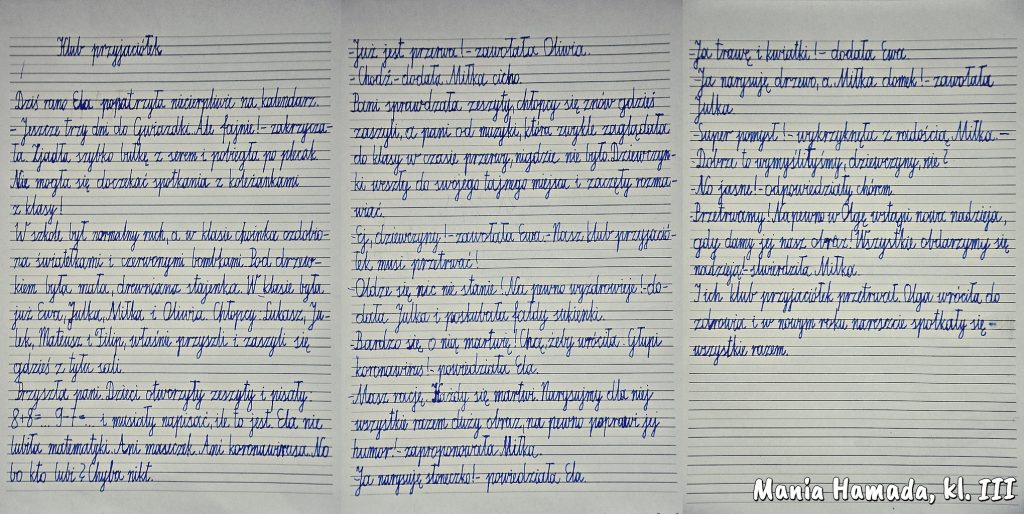 Klub przyjaciółek
Dziś rano Ela popatrzyła niecierpliwie na kalendarz.
- Jeszcze trzy dni do Gwiazdki. Ale fajnie! - zakrzycza-
ła. Zjadła szybko bułkę z serem i pobiegła po plecak.
Nie mogła się doczekać spotkania z koleżankami
z klasy!
W szkole był normalny ruch, a w klasie choinka ozdobio-
na światełkami i czerwonymi bombkami. Pod drzew-
kiem była mała, drewniana stajenka. W klasie była
już Ewa, Julka, Miłka i Oliwia. Chłopcy: Łukasz, Ju-
lek, Mateusz i Filip, właśnie przyszli i zaszyli się
gdzieś z tyłu sali.
Przyszła pani. Dzieci otworzyły zeszyty i pisały:
8+8=... 9-7=... i musiały napisać, ile to jest. Ela nie
lubiła matematyki. Ani maseczek. Ani koronawirusa. No
bo kto lubi? Chyba nikt.
- Już jest przerwa! - zawołała Oliwia.
- Chodź - dodała Miłka cicho.
Pani sprawdzała zeszyty, chłopcy się znów gdzieś
zaszyli, a pani od muzyki, która zwykle zaglądała
do klasy w czasie przerwy, nigdzie nie było. Dziewczyn-
ki wyszły do swojego tajnego miejsca i zaczęły rozma-
wiać.
- Ej, dziewczyny! - zawołała Ewa. - Nasz klub przyjació-
łek musi przetrwać!
- Oldze się nic nie stanie! Na pewno wyzdrowieje! - do-
dała Julka i poskubała fałdy sukienki.
- Bardzo się o nią martwię! Chcę, żeby wróciła. Głupi
koronawirus! - powiedziała Ela.
- Masz rację. Każdy się martwi. Narysujmy dla niej
wszystkie razem duży obraz, na pewno poprawi jej
humor! - zaproponowała Miłka.
- Ja narysuję słoneczko! - powiedziała Ela.
- Ja trawę i kwiatki! - dodała Ewa.
- Ja narysuję drzewo, a Miłka domek! - zawołała
Julka.
- Super pomysł! - wykrzyknęła z radością Miłka. -
- Dobrze to wymyśliłyśmy, dziewczyny, nie?
- No jasne! - odpowiedziały chórem.
Przetrwamy! Na pewno w Olgę wstąpi nowa nadzieja,
gdy damy jej nasz obraz! Wszystkie obdarzymy się
nadzieją - stwierdzała Miłka.
I ich klub przyjaciółek przetrwał. Olga wróciła do
zdrowia i w nowym roku nareszcie spotkały się -
wszystkie razem.
Mania Hamada, kl. III